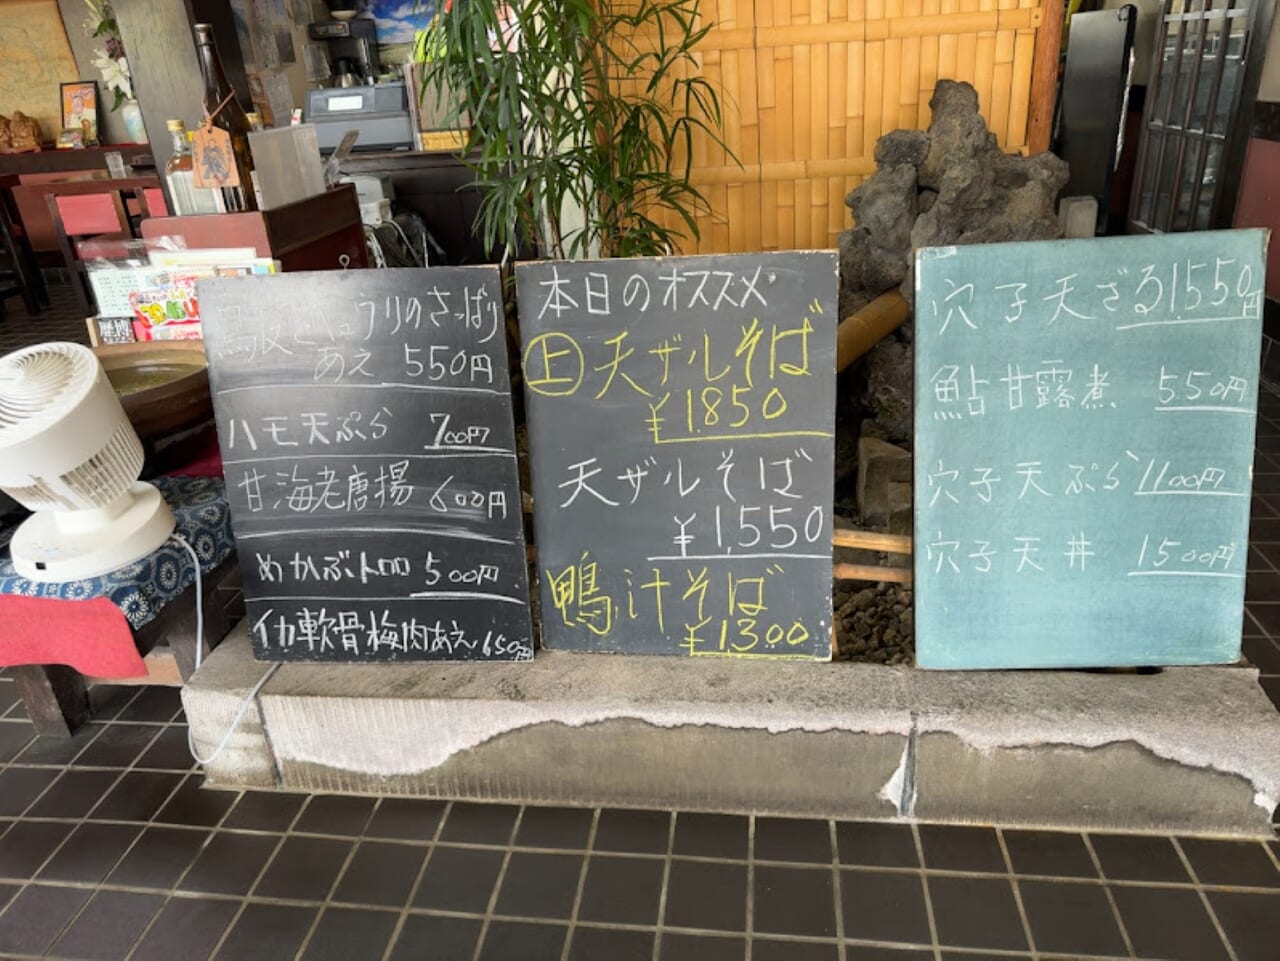 鳥皮とキュウリのさっぱり
あえ 550円
ハモ天ぷら 700円
甘海老唐揚 600円
めかぶトロロ 500円
イカ軟骨梅肉あえ 650円
本日のオススメ
上 天ザルそば
¥1.850
天ザルそば
¥1,550
鴨汁そば
¥1.300
穴子天ざる 1,550円
鮎甘露煮 550円
穴子天ぷら 1100円
穴子天丼 1500円